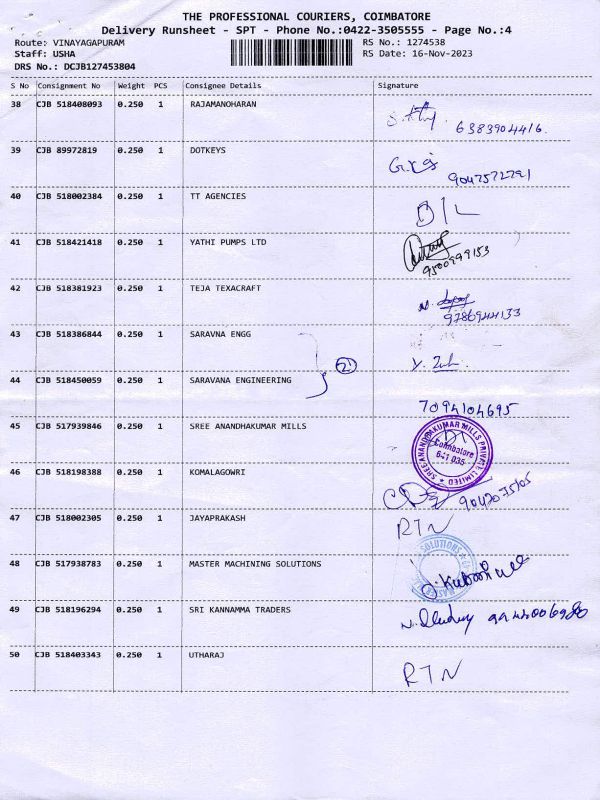 THE PROFESSIONAL COURIERS, COIMBATORE
Delivery Runsheet - SPT - Phone No.:0422-3505555 - Page No.:4
Route: VINAYAGAPURAM RS No.: 1274538
Staff: USHA RS Date: 16-Nov-2023
DRS No.: DCJB127453804
S No Consignment No Weight PCS Consignee Details Signature
38 CJB 518408093 0.250 1 RAJAMANOHARAN
6383904416.
39 CJB 89972819 0.250 1 DOTKEYS
9047572291
40 CJB 518002384 0.250 1 TT AGENCIES
41 CJB 518421418 0.250 1 YATHI PUMPS LTD
9500999153
42 CJB 518381923 0.250 1 TEJA TEXACRAFT
9786944133
43 CJB 518386844 0.250 1 SARAVNA ENGG
2
44 CJB 518450059 0.250 1 SARAVANA ENGINEERING
7094104695
45 CJB 517939846 0.250 1 SREE ANANDHAKUMAR MILLS
SREE ANANDHAKUMAR MILLS PRIVATE LIMITED
Coimbatore
641 035
46 CJB 518198388 0.250 1 KOMALAGOWRI
47 CJB 518002305 0.250 1 JAYAPRAKASH RTN
48 CJB 517938783 0.250 1 MASTER MACHINING SOLUTIONS
SOLUTIONS
49 CJB 518196294 0.250 1 SRI KANNAMMA TRADERS
50 CJB 518403343 0.250 1 UTHARAJ RTN